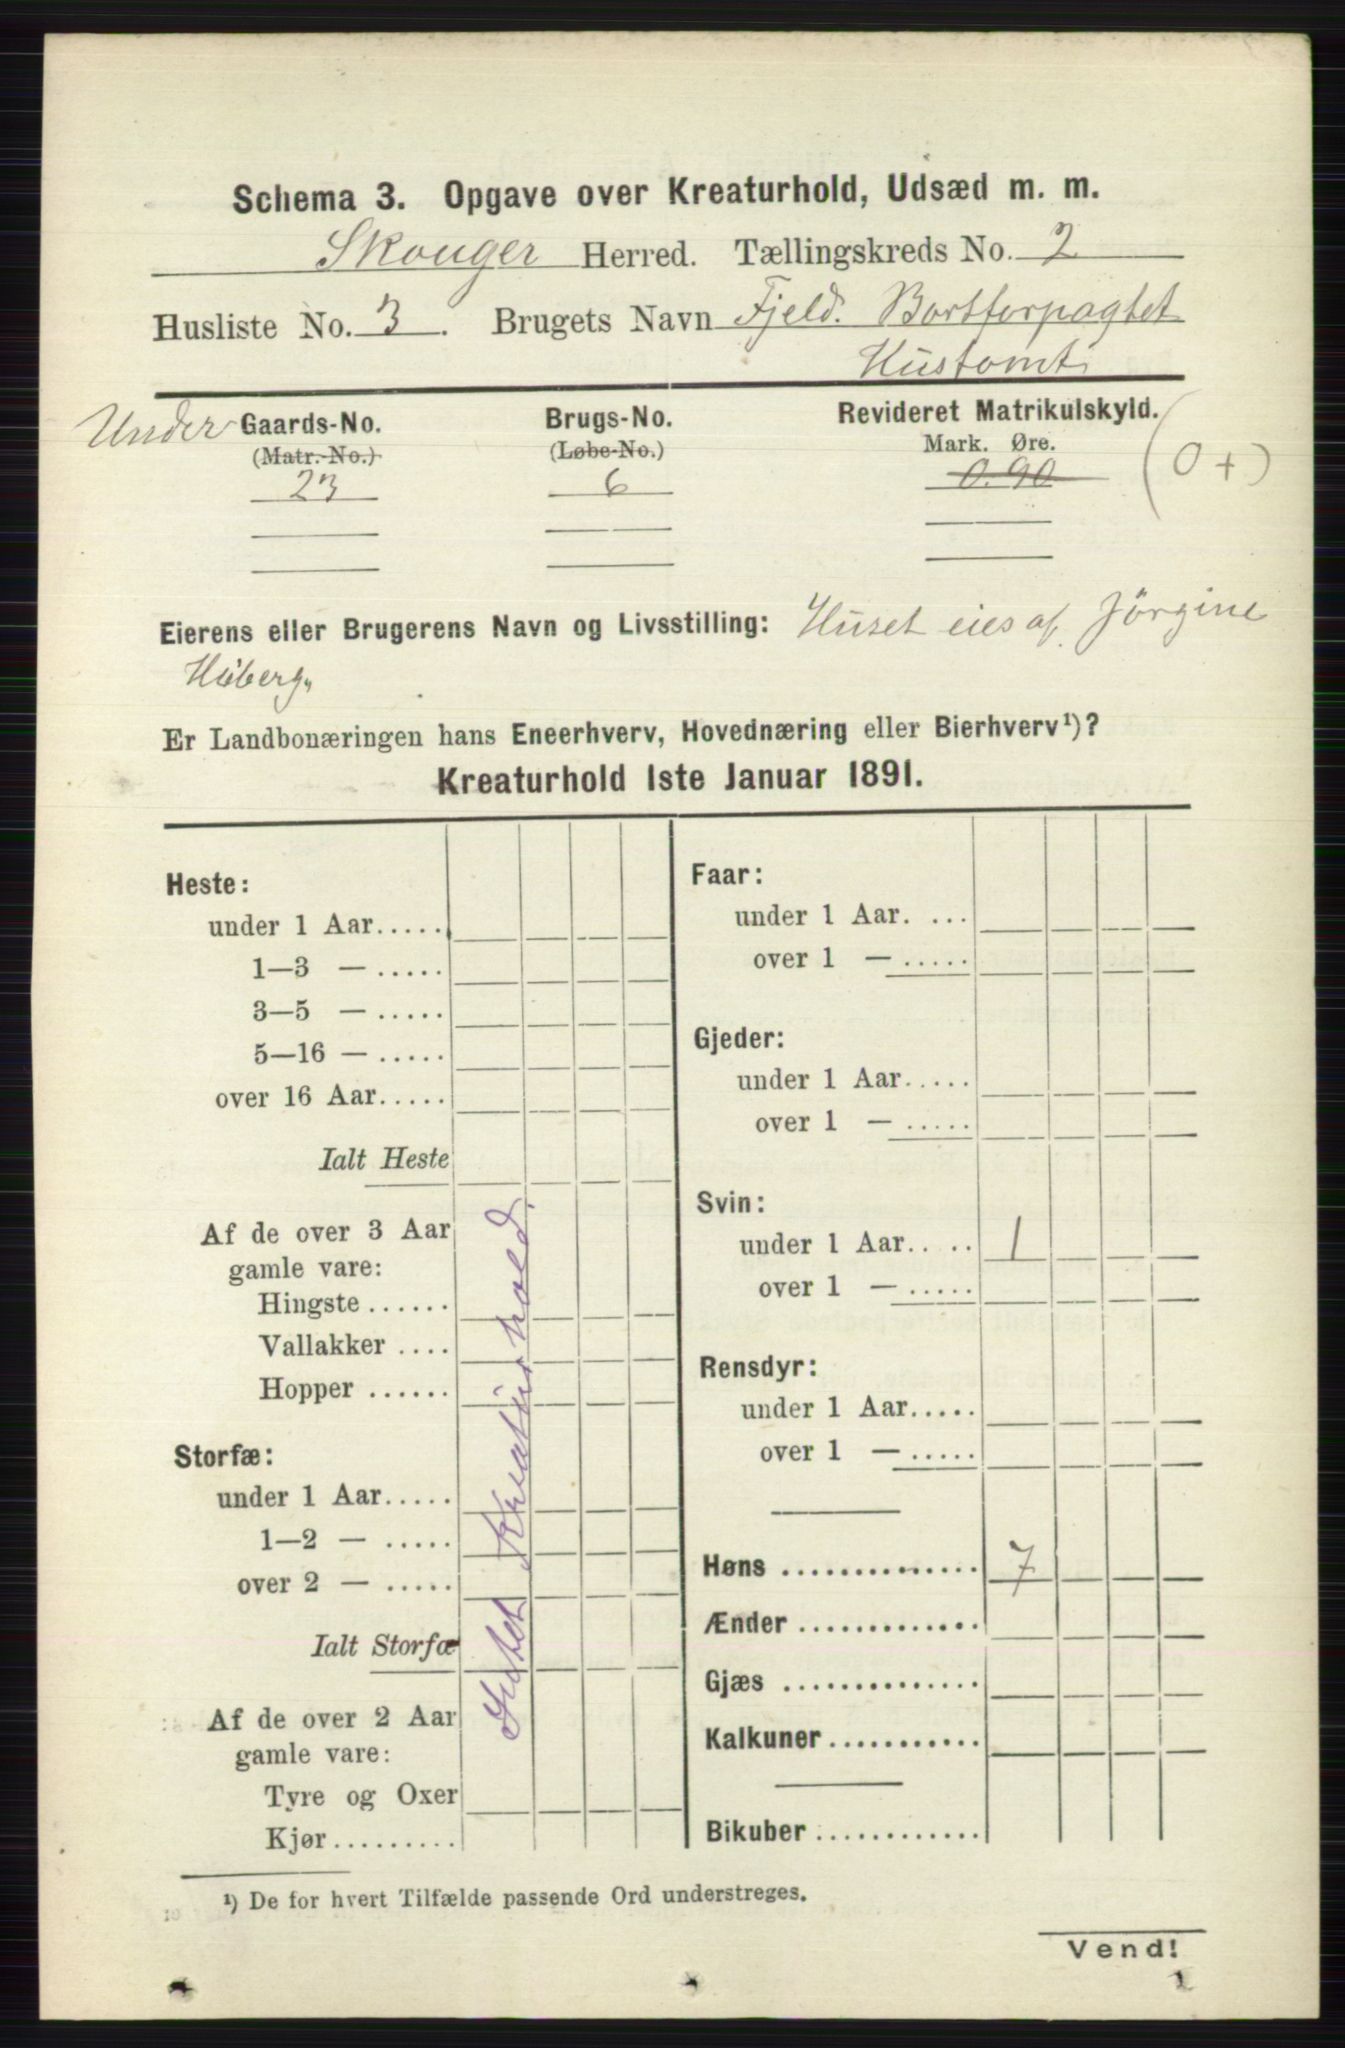 Schema 3. Opgave over Kreaturhold, Udsæd m. m.
Skouger Herred. Tællingskreds No. 2
Husliste No. 3. Brugets Navn Fjeld. Bortforpagtet
Hustomt
Under Gaards-No. Brugs-No. Revideret Matrikulskyld.
(Matr.-No.) (Løbe-No.) Mark. Øre.
23 6 0.90 (0 +)
Eierens eller Brugerens Navn og Livsstilling: Huset eies af Jörgine
Høberg
Er Landbonæringen hans Eneerhverv, Hovednæring eller Bierhverv¹)?
Kreaturhold 1ste Januar 1891.
Heste:
under 1 Aar.....
1—3 — .....
3—5 — .....
5—16 — .....
over 16 Aar.....
Ialt Heste
Af de over 3 Aar
gamle vare:
Hingste......
Vallakker ....
Hopper ......
Storfæ:
under 1 Aar.....
1—2 — .....
over 2 — .....
Ialt Storfæ
Af de over 2 Aar
gamle vare:
Tyre og Oxer
Kjør.........
Intet Kreaturhold.
Faar:
under 1 Aar. ...
over 1 — .....
Gjeder:
under 1 Aar.....
over 1 — .....
Svin:
under 1 Aar..... 1
over 1 — .....
Rensdyr:
under 1 Aar.....
over 1 — .....
Høns .............. 7
Ænder .............
Gjæs ..............
Kalkuner...........
Bikuber ............
¹) De for hvert Tilfælde passende Ord understreges.
Vend!